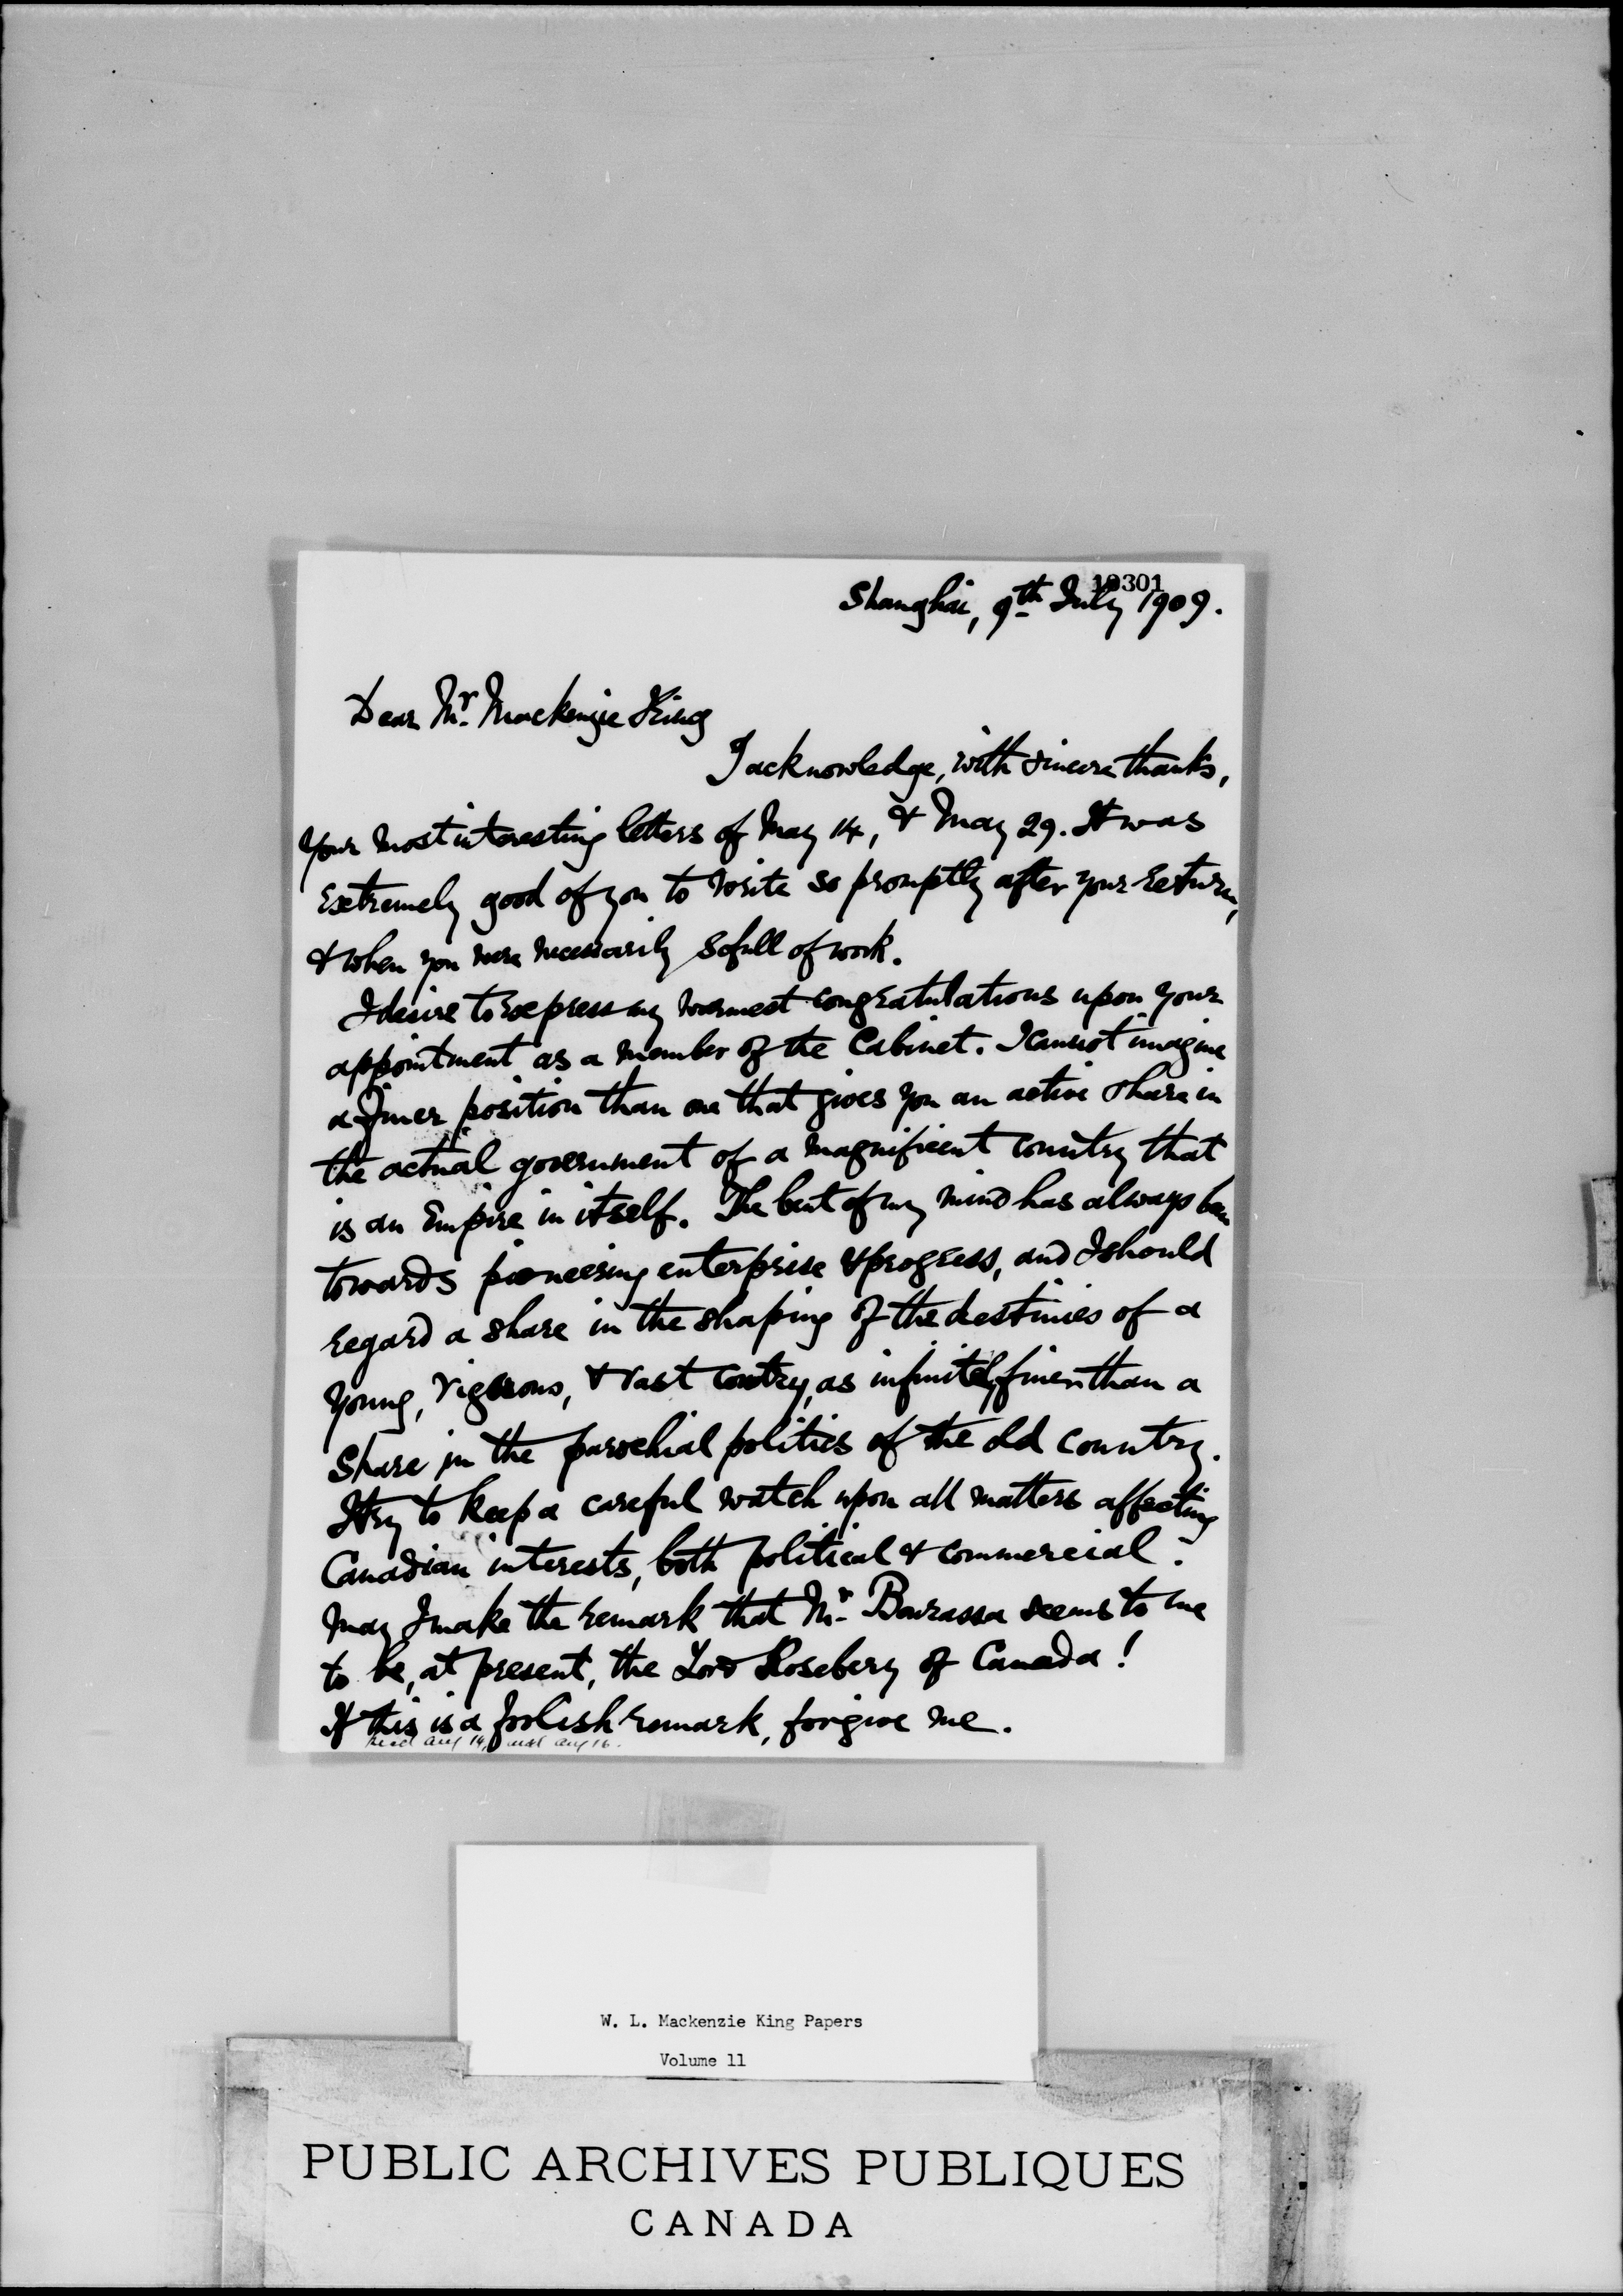 10301
Shanghai, 9th July 1909.
Dear Mr. Mackenzie King
I acknowledge, with sincere thanks,
your most interesting letters of May 14, & May 29. It was
extremely good of you to write so promptly after your return,
& when you were necessarily so full of work.
I desire to express my warmest congratulations upon your
appointment as a member of the Cabinet. I cannot imagine
a finer position than one that gives you an active share in
the actual government of a magnificent country that
is an Empire in itself. The bent of my mind has always been
towards pioneering enterprise & progress, and I should
regard a share in the shaping of the destinies of a
young, vigorous, & vast country, as infinitely finer than a
share in the parochial politics of the old country.
I try to keep a careful watch upon all matters affecting
Canadian interests, both political & commercial.
May I make the remark that Mr. Bourassa seems to me
to be, at present, the Lord Rosebery of Canada!
If this is a foolish remark, forgive me.
Aug 14, Aug 16.
W. L. Mackenzie King Papers
Volume 11
PUBLIC ARCHIVES PUBLIQUES
CANADA